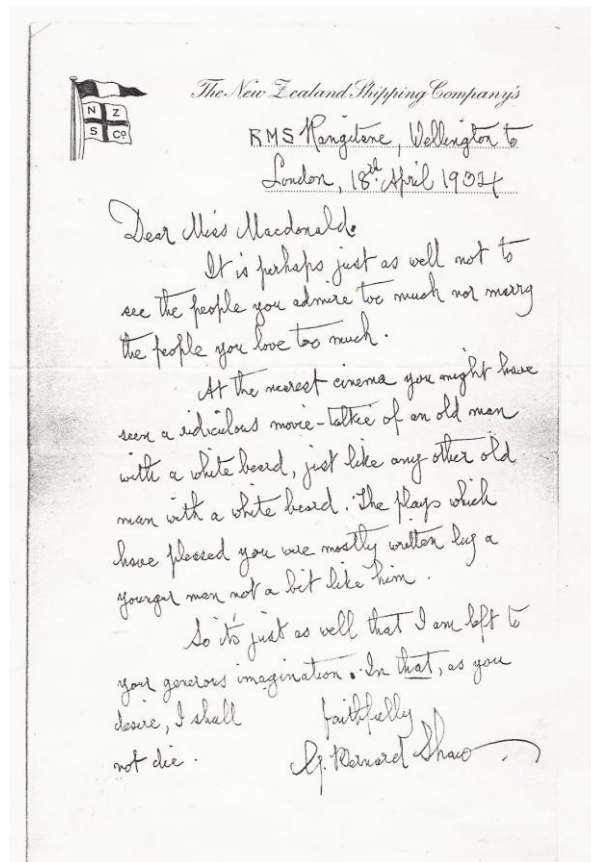 The New Zealand Shipping Company's
N Z
S Co
RMS Rangitane, Wellington to
London, 18th April 1934
Dear Miss Macdonald.
It is perhaps just as well not to
see the people you admire too much nor marry
the people you love too much.
At the nearest cinema you might have
seen a ridiculous movie-talkie of an old man
with a white beard, just like any other old
man with a white beard. The plays which
have pleased you were mostly written by a
younger man not a bit like him.
So it's just as well that I am left to
your generous imagination. In that, as you
desire, I shall
not die.
faithfully
G. Bernard Shaw